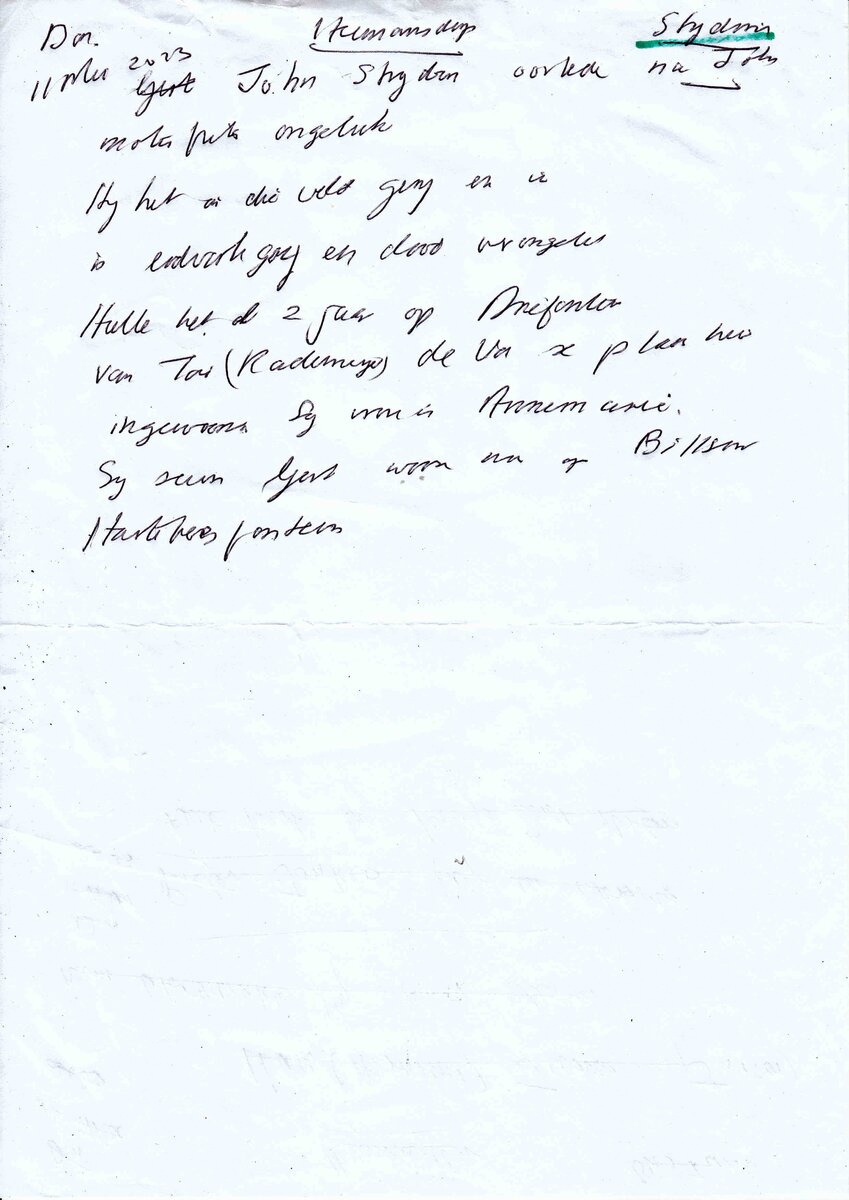 Don. Humansdorp Strydom
11 Mei 2023 Gert John Strydom oorlede na John
motor fiets ongeluk
Hy het in die veld gery en in
'n erdvark gat en dood verongeluk
Hulle het al 2 jaar op Driefontein
van Tom (Rademeyer) de Va se plaas
ingewoon Sy vrou is Annemarie.
Sy seun Gert woon nou op Billson
Hartebeesfontein